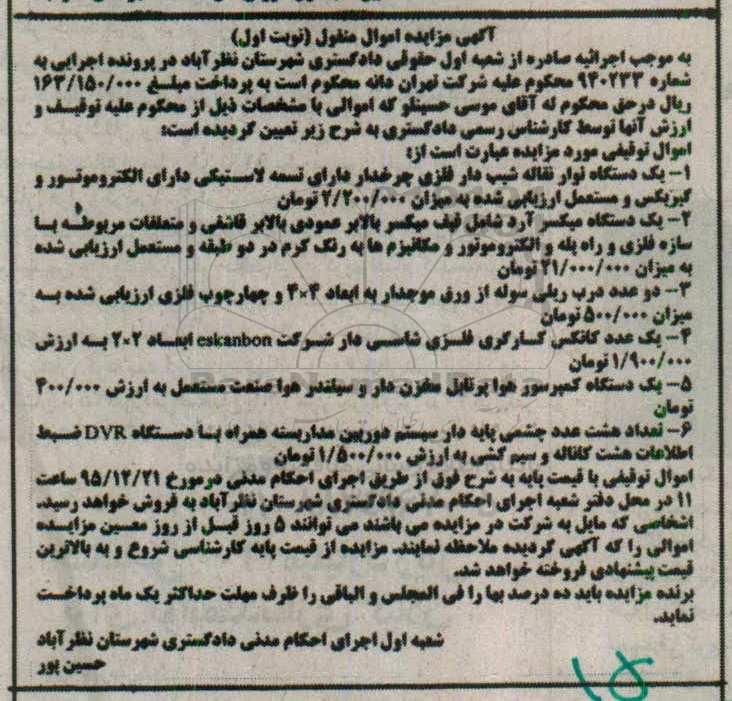 آگهی مزایده اموال منقول (نوبت اول)
به موجب اجرائیه صادره از شعبه اول حقوقی دادگستری شهرستان نظرآباد در پرونده اجرایی به
شماره ۹۴۰۲۳۳ محکوم علیه شرکت تهران دانه محکوم است به پرداخت مبلغ ۱۶۳/۱۵۰/۰۰۰
ریال درحق محکوم له آقای موسی حسینلو که اموالی با مشخصات ذیل از محکوم علیه توقیف و
ارزش آنها توسط کارشناس رسمی دادگستری به شرح زیر تعیین گردیده است:
اموال توقیفی مورد مزایده عبارت است از:
۱- یک دستگاه نوار نقاله شیب دار فلزی چرخدار دارای تسمه لاستیکی دارای الکتروموتور و
گیربکس و مستعمل ارزیابی شده به میزان ۲/۲۰۰/۰۰۰ تومان
۲- یک دستگاه میکسر آرد شامل قیف میکسر بالابر عمودی بالابر قاشقی و متعلقات مربوطه با
سازه فلزی و راه پله و الکتروموتور و مکانیزم ها به رنگ کرم در دو طبقه و مستعمل ارزیابی شده
به میزان ۲۱/۰۰۰/۰۰۰ تومان
۳- دو عدد درب ریلی سوله از ورق موجدار به ابعاد ۴×۴ و چهارچوب فلزی ارزیابی شده به
میزان ۵۰۰/۰۰۰ تومان
۴- یک عدد کانکس کارگری فلزی شاسی دار شرکت eskanbon ابعاد ۲×۲ به ارزش
۱/۹۰۰/۰۰۰ تومان
۵- یک دستگاه کمپرسور هوا پرتابل مخزن دار و سیلندر هوا صنعت مستعمل به ارزش ۴۰۰/۰۰۰
تومان
۶- تعداد هشت عدد چشمی پایه دار سیستم دوربین مداربسته همراه با دستگاه DVR ضبط
اطلاعات هشت کاناله و سیم کشی به ارزش ۱/۵۰۰/۰۰۰ تومان
اموال توقیفی با قیمت پایه به شرح فوق از طریق اجرای احکام مدنی درمورخ ۹۵/۱۲/۲۱ ساعت
۱۱ در محل دفتر شعبه اجرای احکام مدنی دادگستری شهرستان نظرآباد به فروش خواهد رسید.
اشخاصی که مایل به شرکت در مزایده می باشند می توانند ۵ روز قبل از روز معین مزایده
اموالی را که آگهی گردیده ملاحظه نمایند. مزایده از قیمت پایه کارشناسی شروع و به بالاترین
قیمت پیشنهادی فروخته خواهد شد.
برنده مزایده باید ده درصد بها را فی المجلس و الباقی را ظرف مهلت حداکثر یک ماه پرداخت
نماید.
شعبه اول اجرای احکام مدنی دادگستری شهرستان نظرآباد
حسین پور